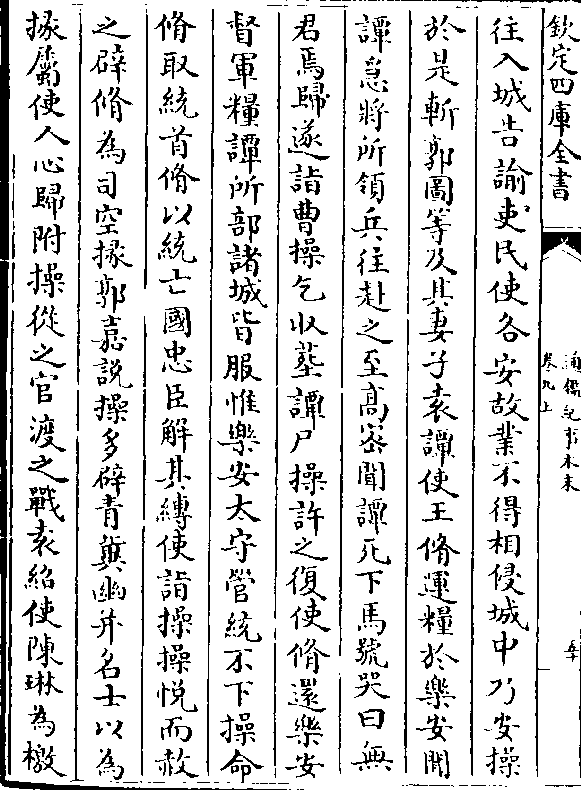 欽定四庫全書
通鑑紀事本末
卷九上
往入城告諭吏民使各安故業不得相侵城中乃安操
於是斬郭圖等及其妻子袁譚使王脩運糧於樂安聞
譚急將所領兵往赴之至高宻聞譚死下馬號哭曰無
君焉歸遂詣曹操乞收葬譚尸操許之復使脩還樂安
督軍糧譚所部諸城皆服惟樂安太守管統不下操命
脩取統首脩以統亡國忠臣解其縛使詣操操悦而赦
之辟脩為司空掾郭嘉説操多辟青冀幽并名士以為
掾屬使人心歸附操從之官渡之戰袁紹使陳琳為檄